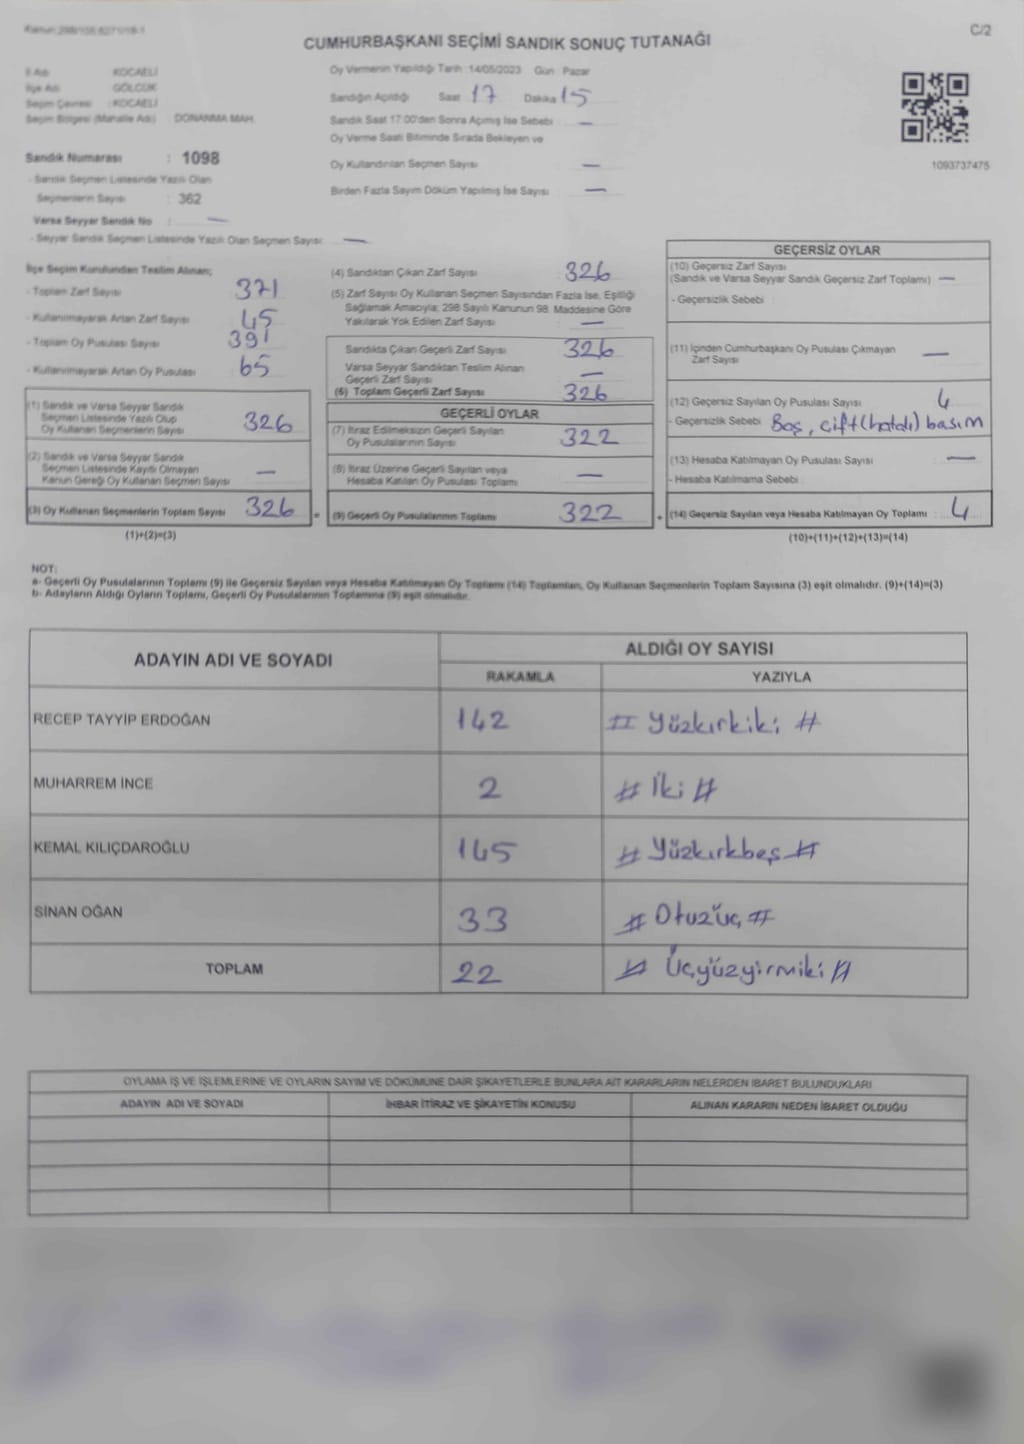 Kanun:298/105;6271/18-1
C/2
CUMHURBAŞKANI SEÇİMİ SANDIK SONUÇ TUTANAĞI
İl Adı KOCAELİ
İlçe Adı GÖLCÜK
Seçim Çevresi :KOCAELİ
Seçim Bölgesi (Mahalle Adı) DONANMA MAH.
Oy Vermenin Yapıldığı Tarih :14/05/2023 Gün : Pazar
Sandığın Açıldığı Saat 17 Dakika 15
Sandık Saat 17.00'den Sonra Açımış İse Sebebi —
Oy Verme Saati Bitiminde Sırada Bekleyen ve
Oy Kullandırılan Seçmen Sayısı —
Birden Fazla Sayım Döküm Yapılmış İse Sayısı —
1093737475
Sandık Numarası : 1098
- Sandık Seçmen Listesinde Yazılı Olan
Seçmenlerin Sayısı : 362
Varsa Seyyar Sandık No : —
- Seyyar Sandık Seçmen Listesinde Yazılı Olan Seçmen Sayısı: —
İlçe Seçim Kurulundan Teslim Alınan;
- Toplam Zarf Sayısı 371
- Kullanılmayarak Artan Zarf Sayısı 45
- Toplam Oy Pusulası Sayısı 391
- Kullanılmayarak Artan Oy Pusulası 65
(1) Sandık ve Varsa Seyyar Sandık
Seçmen Listesinde Yazılı Olup
Oy Kullanan Seçmenlerin Sayısı 326
(2) Sandık ve Varsa Seyyar Sandık
Seçmen Listesinde Kayıtlı Olmayan
Kanun Gereği Oy Kullanan Seçmen Sayısı —
(3) Oy Kullanan Seçmenlerin Toplam Sayısı 326 =
(1)+(2)=(3)
(4) Sandıktan Çıkan Zarf Sayısı 326
(5) Zarf Sayısı Oy Kullanan Seçmen Sayısından Fazla İse, Eşitliği
Sağlamak Amacıyla; 298 Sayılı Kanunun 98. Maddesine Göre
Yakılarak Yok Edilen Zarf Sayısı —
Sandıkta Çıkan Geçerli Zarf Sayısı 326
Varsa Seyyar Sandıktan Teslim Alınan
Geçerli Zarf Sayısı —
(6) Toplam Geçerli Zarf Sayısı 326
GEÇERLİ OYLAR
(7) İtiraz Edilmeksizin Geçerli Sayılan
Oy Pusulalarının Sayısı 322
(8) İtiraz Üzerine Geçerli Sayılan veya
Hesaba Katılan Oy Pusulası Toplamı —
(9) Geçerli Oy Pusulalarının Toplamı 322 +
GEÇERSİZ OYLAR
(10) Geçersiz Zarf Sayısı
(Sandık ve Varsa Seyyar Sandık Geçersiz Zarf Toplamı) —
- Geçersizlik Sebebi
(11) İçinden Cumhurbaşkanı Oy Pusulası Çıkmayan
Zarf Sayısı —
(12) Geçersiz Sayılan Oy Pusulası Sayısı 4
- Geçersizlik Sebebi Boş, çift(hatalı) basım
(13) Hesaba Katılmayan Oy Pusulası Sayısı —
- Hesaba Katılmama Sebebi
(14) Geçersiz Sayılan veya Hesaba Katılmayan Oy Toplamı : 4
(10)+(11)+(12)+(13)=(14)
NOT:
a- Geçerli Oy Pusulalarının Toplamı (9) ile Geçersiz Sayılan veya Hesaba Katılmayan Oy Toplamı (14) Toplamları, Oy Kullanan Seçmenlerin Toplam Sayısına (3) eşit olmalıdır. (9)+(14)=(3)
b- Adayların Aldığı Oyların Toplamı, Geçerli Oy Pusulalarının Toplamına (9) eşit olmalıdır.
ADAYIN ADI VE SOYADI
ALDIĞI OY SAYISI
RAKAMLA YAZIYLA
RECEP TAYYİP ERDOĞAN 142 # Yüzkırkiki #
MUHARREM İNCE 2 # İki #
KEMAL KILIÇDAROĞLU 145 # Yüzkırkbeş #
SİNAN OĞAN 33 # Otuzüç #
TOPLAM 22 # Üçyüzyirmiki #
OYLAMA İŞ VE İŞLEMLERİNE VE OYLARIN SAYIM VE DÖKÜMÜNE DAİR ŞİKAYETLERLE BUNLARA AİT KARARLARIN NELERDEN İBARET BULUNDUKLARI
ADAYIN ADI VE SOYADI İHBAR İTİRAZ VE ŞİKAYETİN KONUSU ALINAN KARARIN NEDEN İBARET OLDUĞU